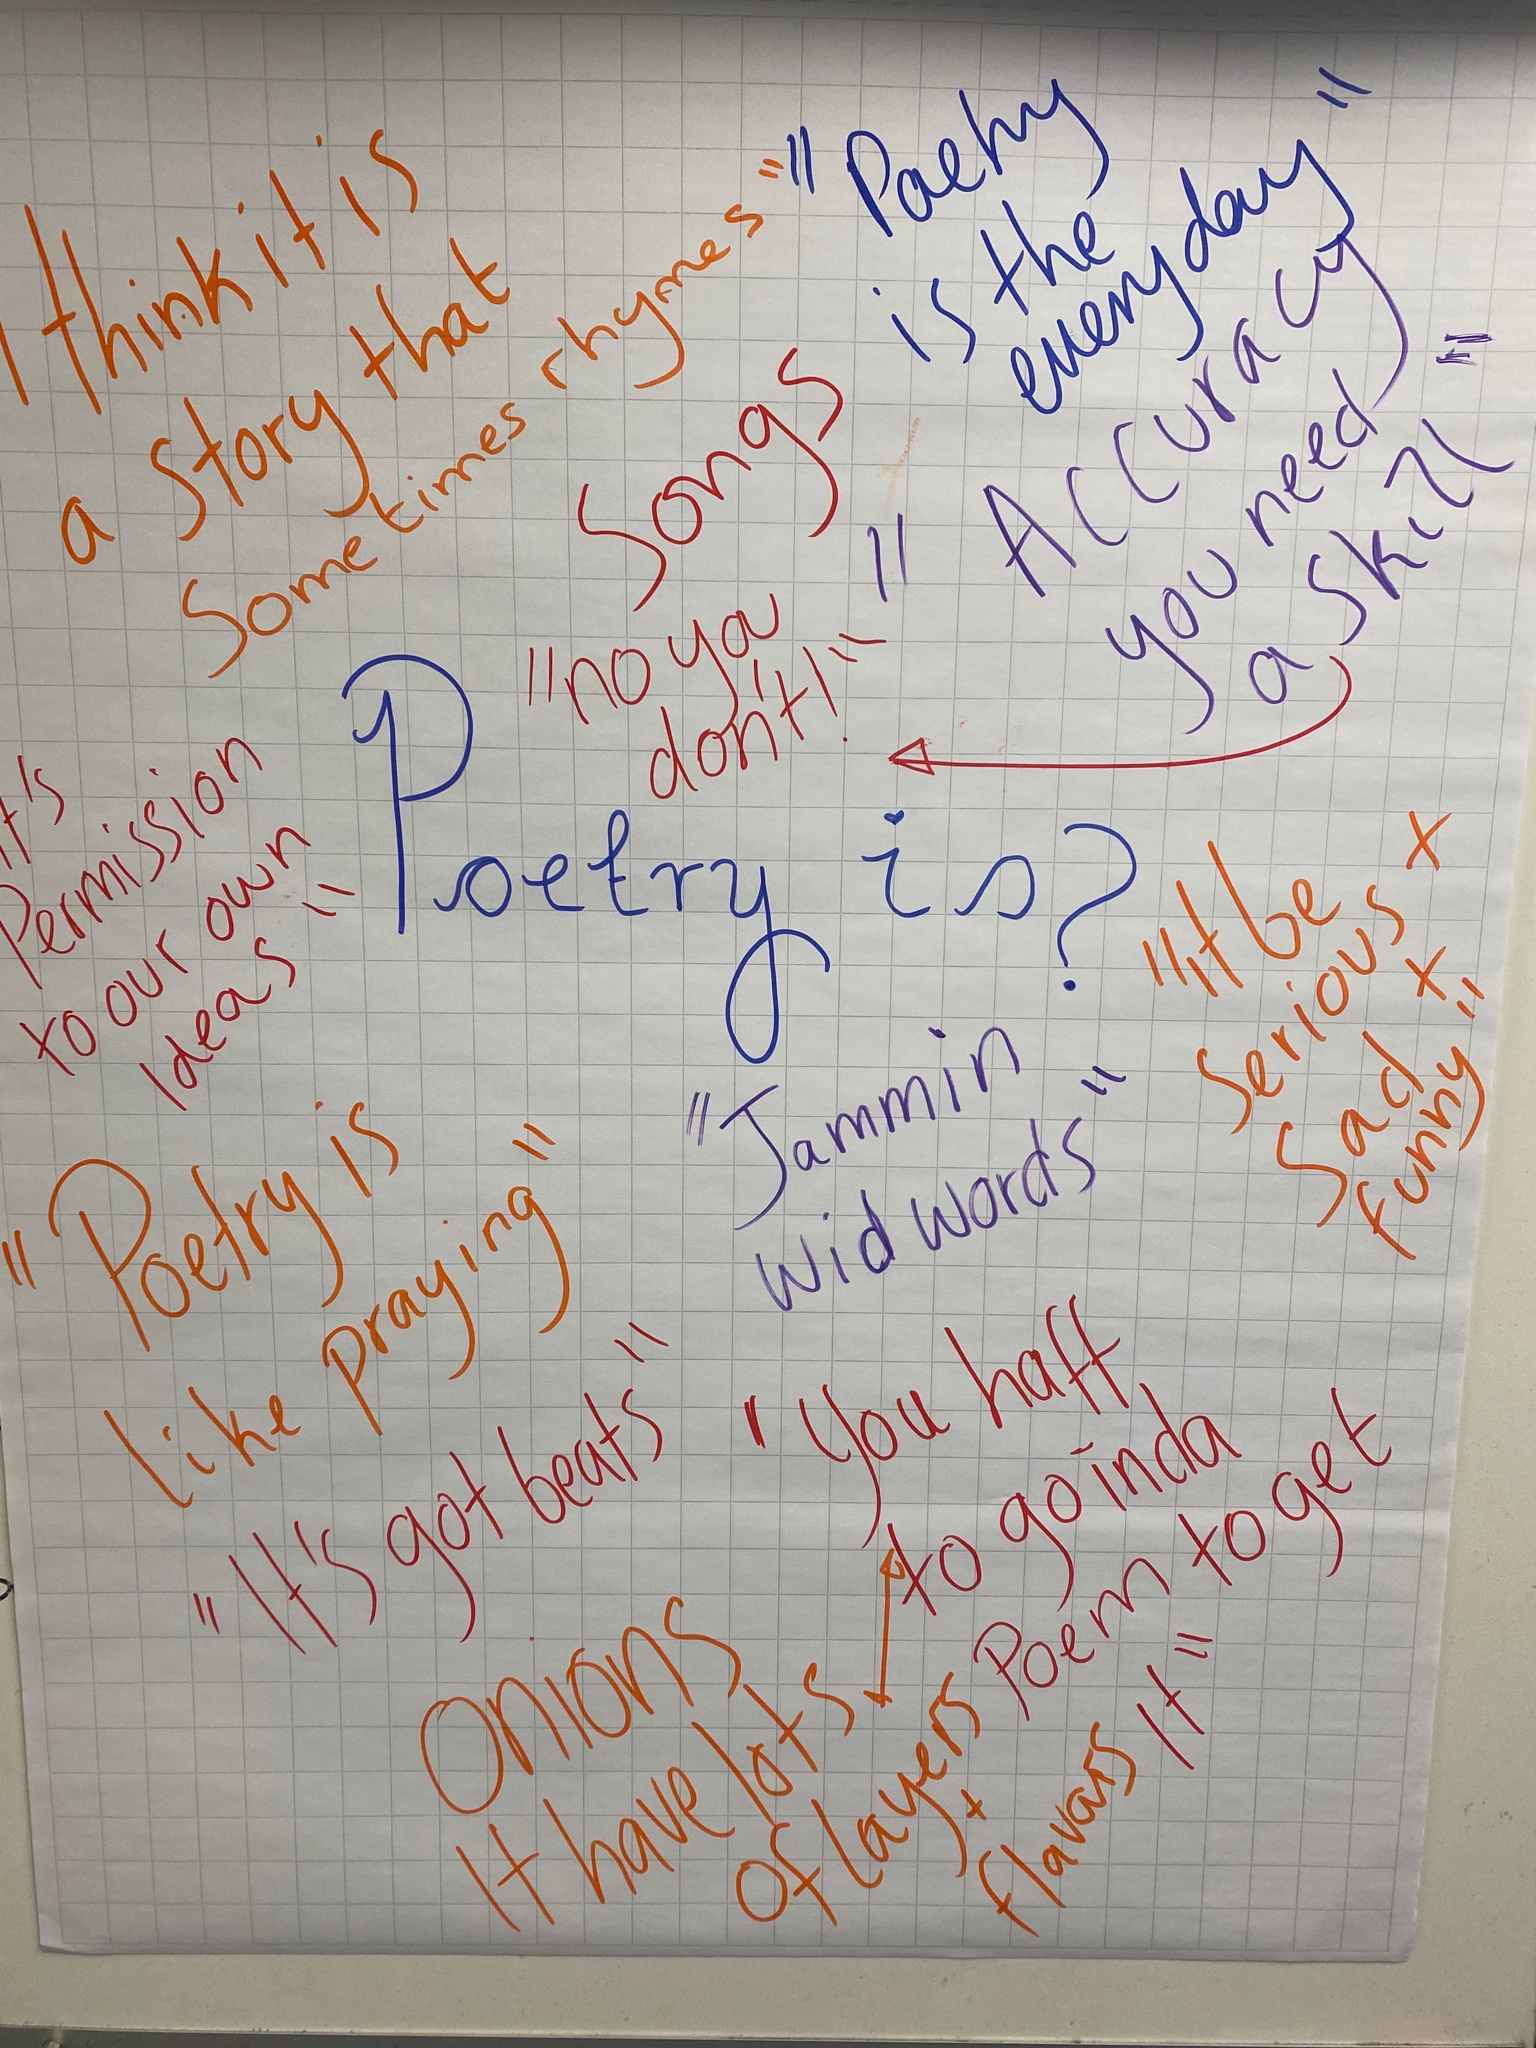 "I think it is
a story that
sometimes rhymes"
"Poetry
is the
everyday"
Songs
"Accuracy
you need
a skill"
"no ya
don't!"
Poetry is?
It's
Permission
to our own
Ideas"
"it be
Serious +
Sad +
funny"
"Jammin
wid words"
"Poetry is
like praying"
"It's got beats"
"You haff
to go inda
Poem to get
It"
Onions
It have lots
of layers
+
flavors